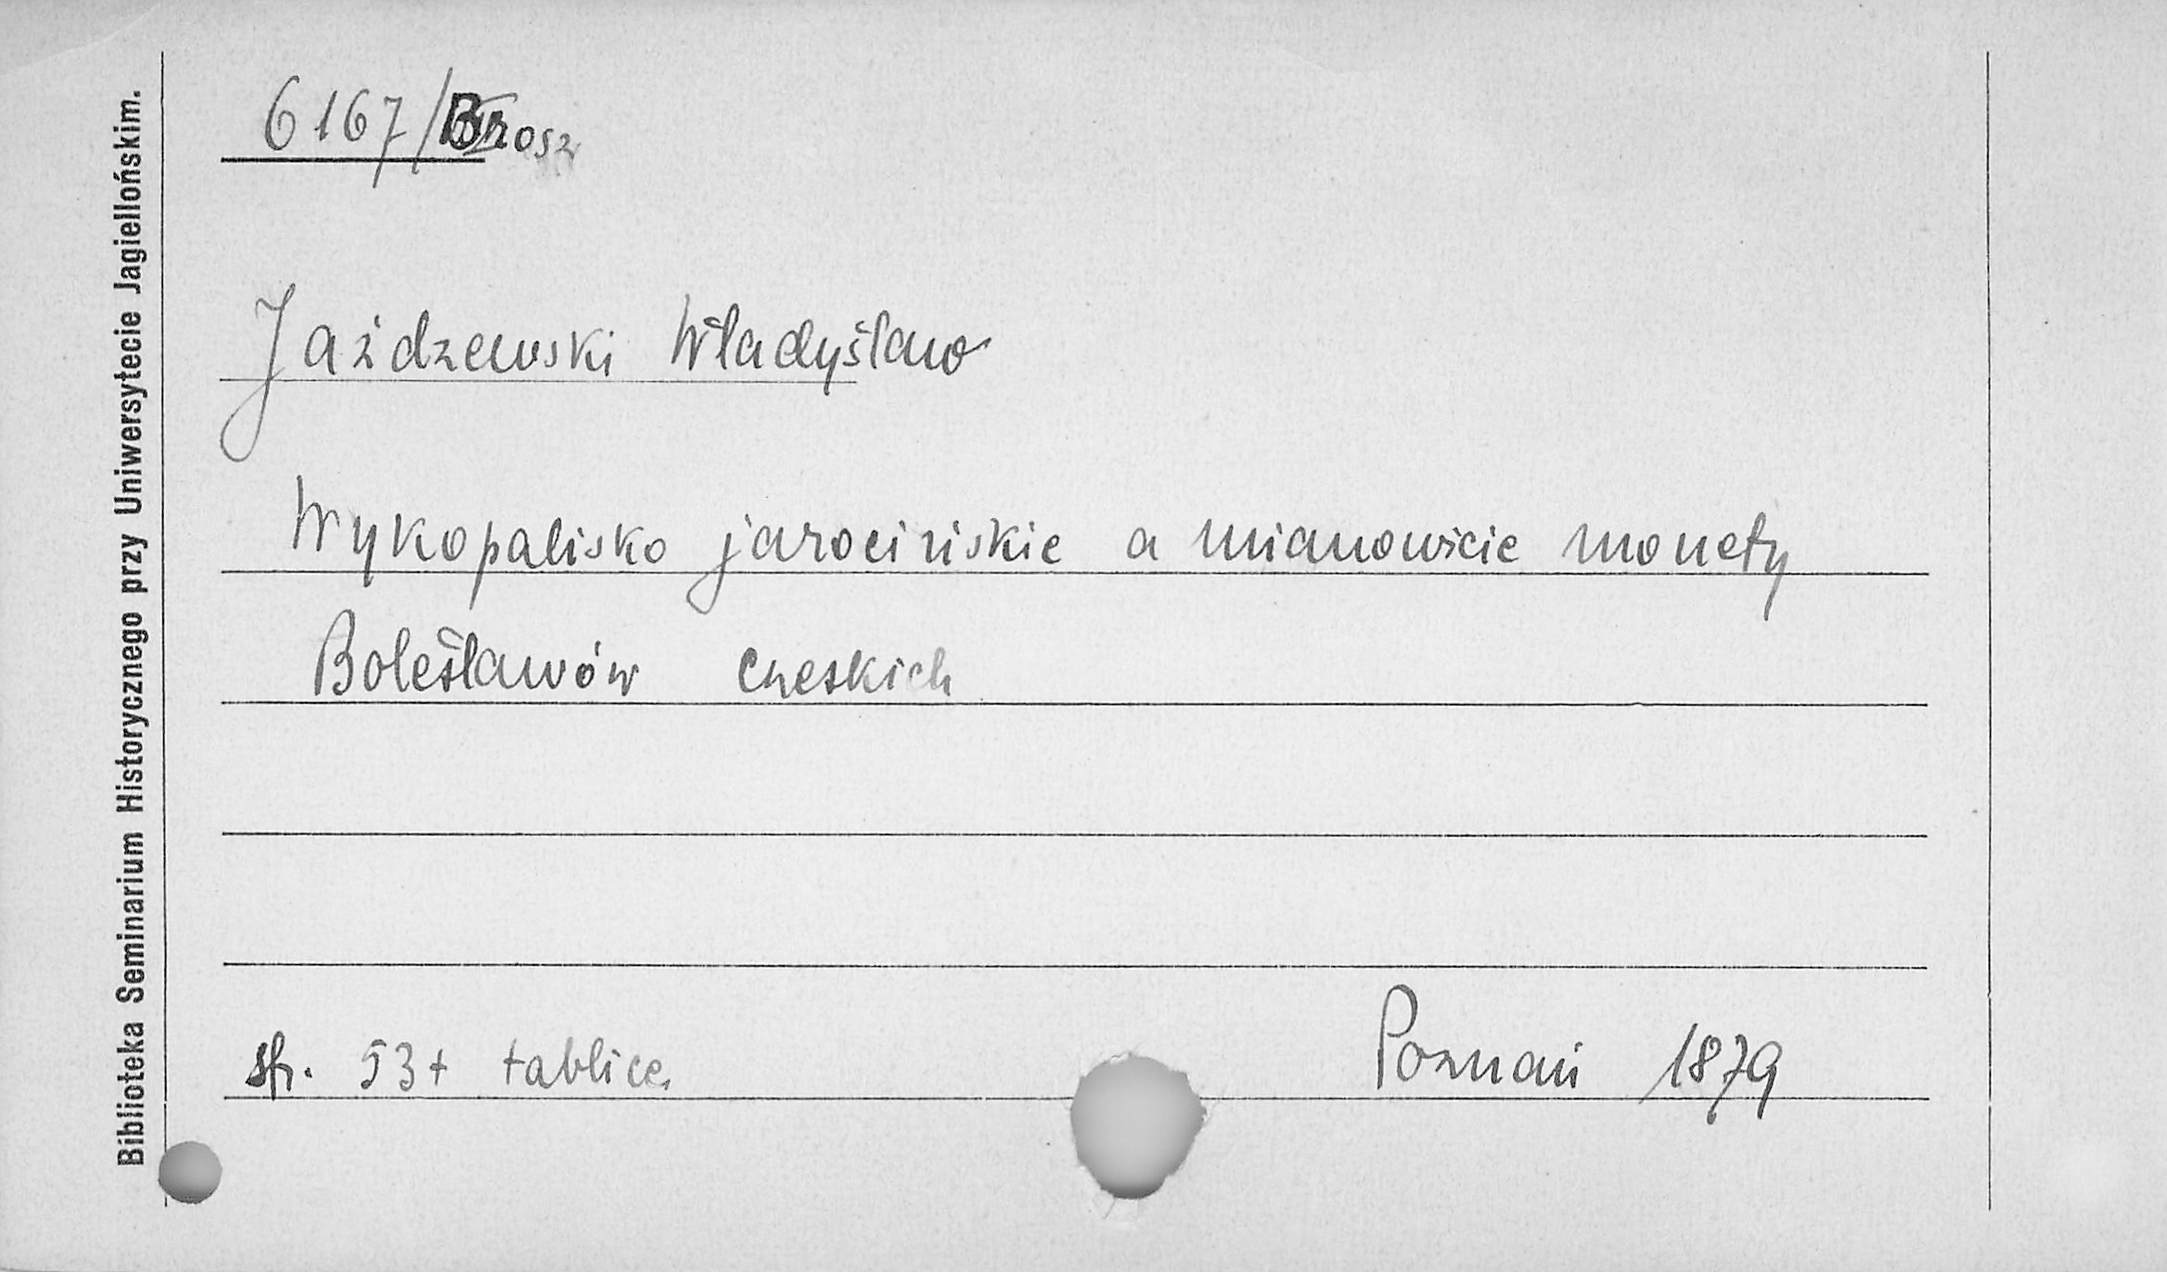 Biblioteka Seminarium Historycznego przy Uniwersytecie Jagiellońskim.
6167/Brosz
Jażdzewski Władysław
Wykopalisko jarocińskie a mianowicie monety
Bolesławów czeskich
str. 53 + tablice.
Poznań 1879